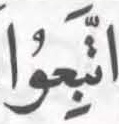 اتَّبِعُوا